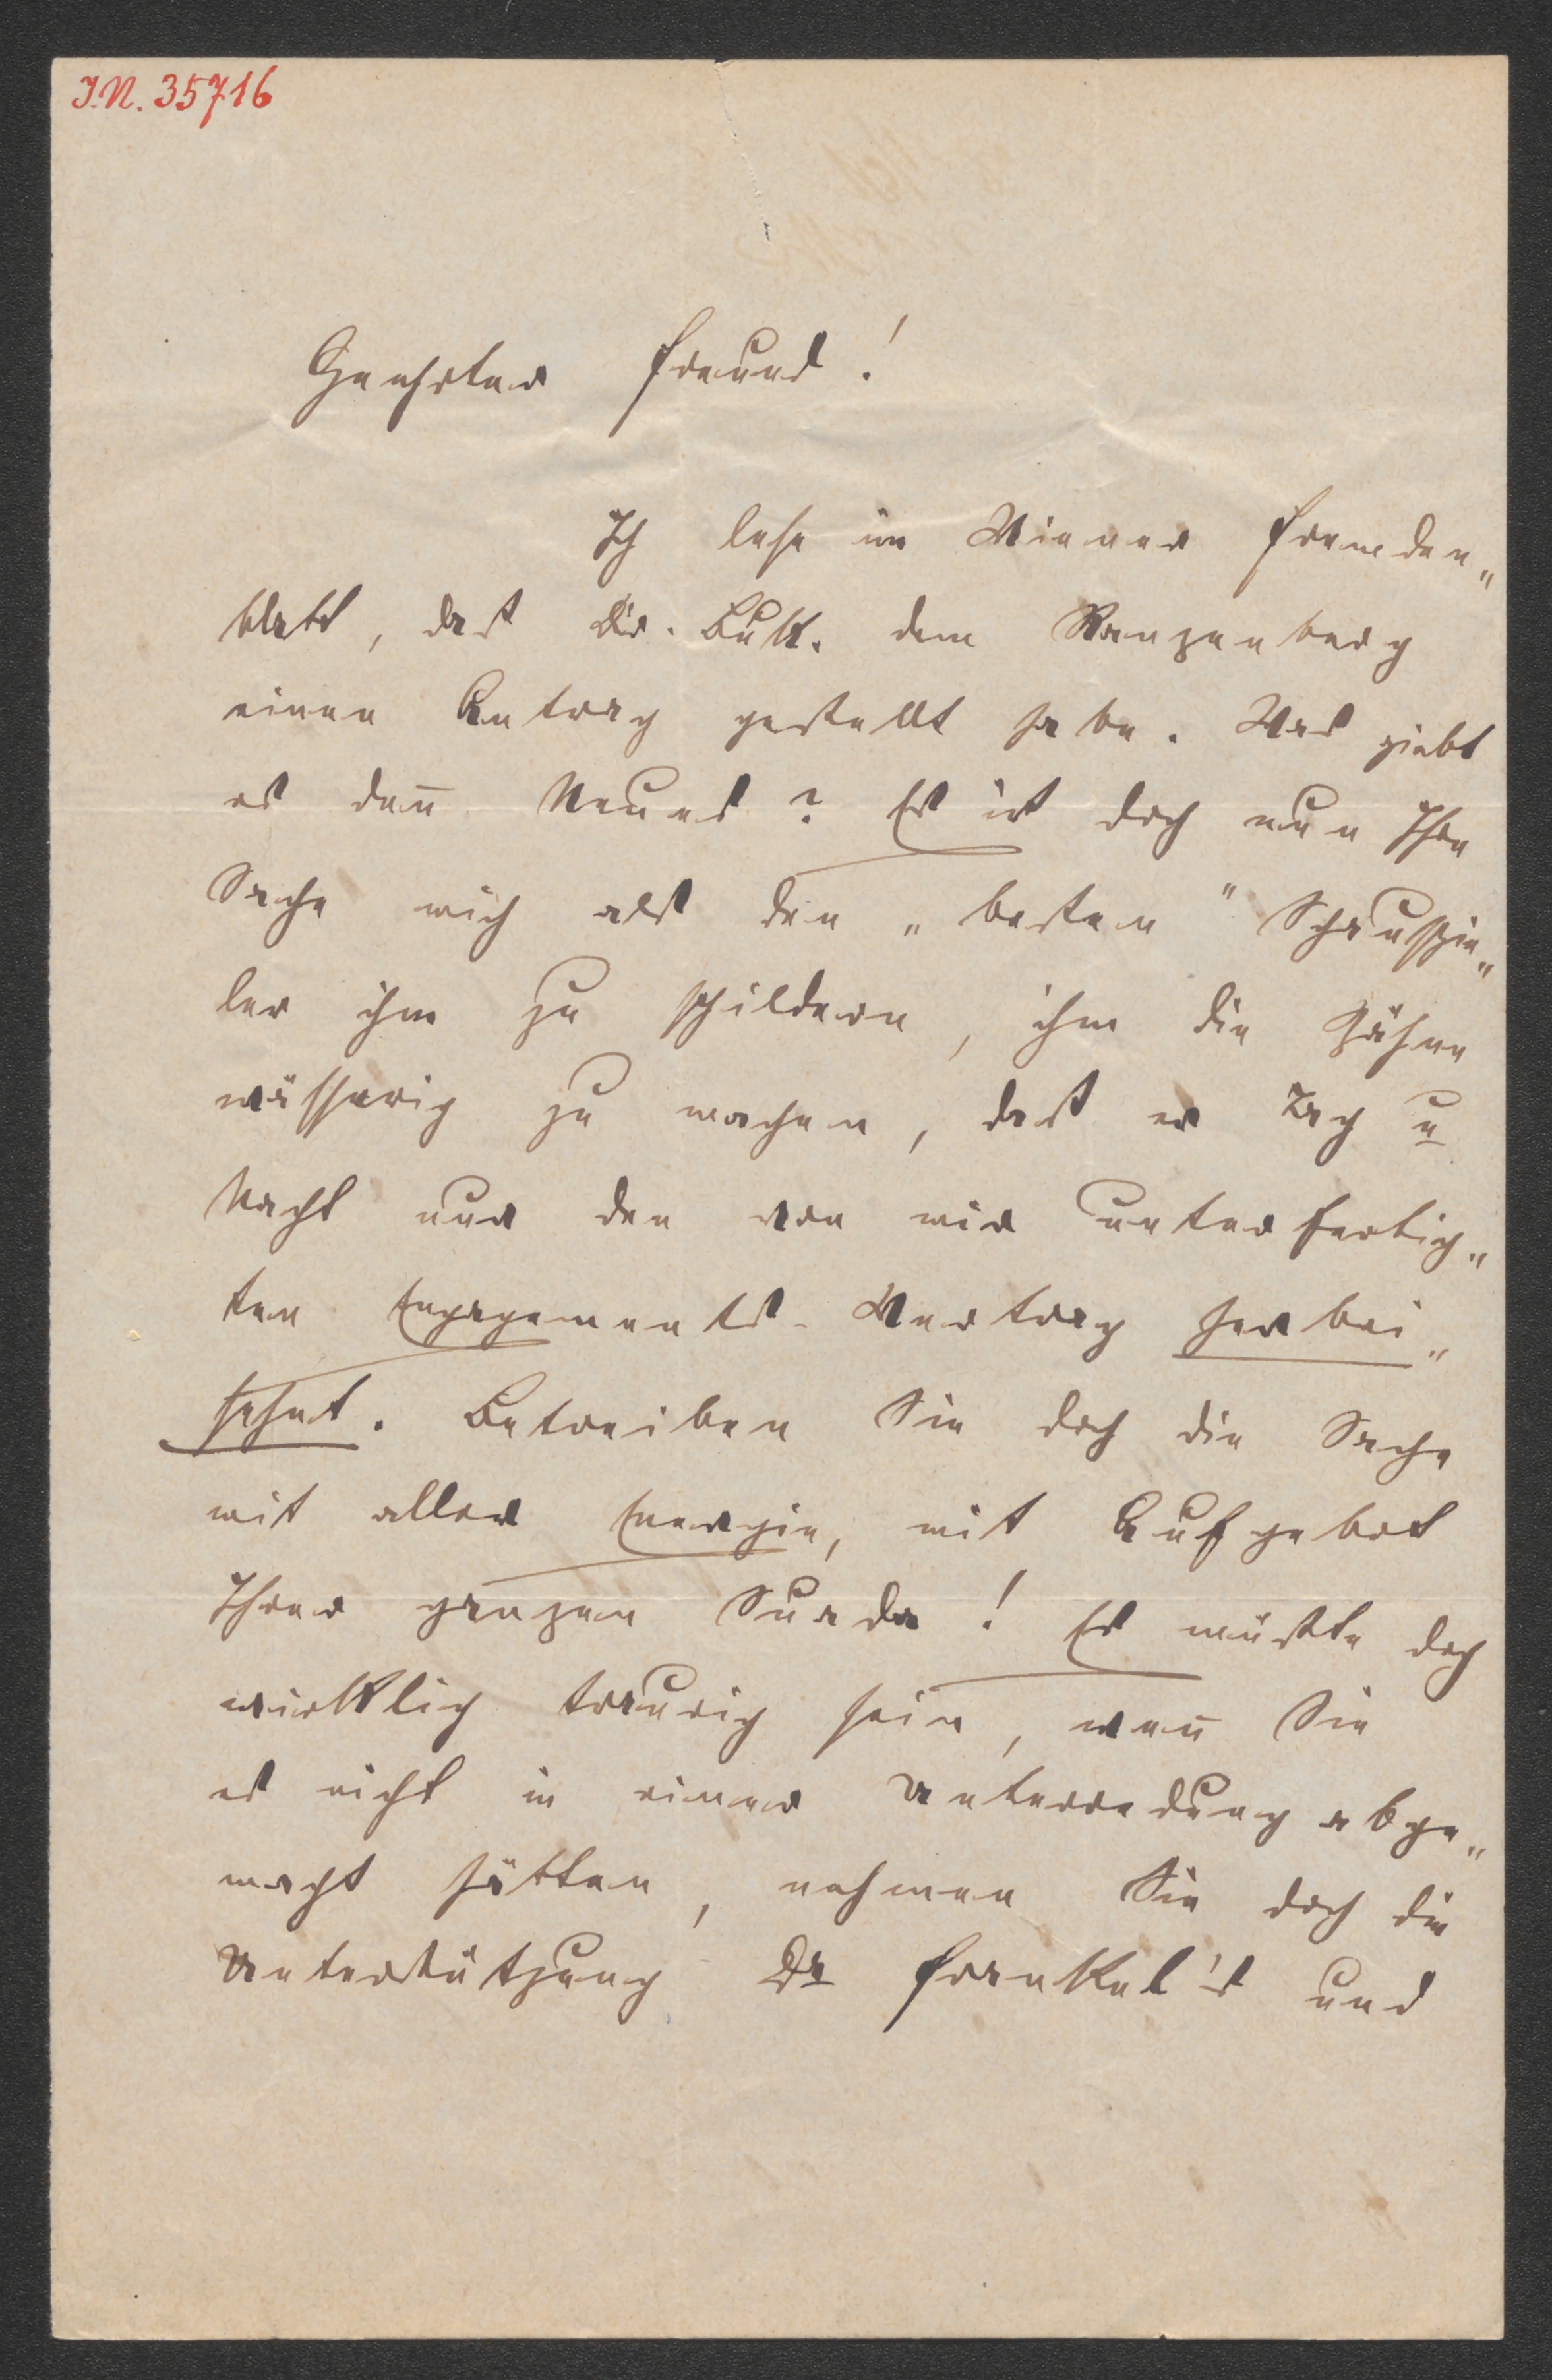 I.N. 35716
Geehrter Freund!
Ich lese im Wiener Fremden„
blatt, daß Dir. Buk. dem Ranzenberg
einen Antrag gestellt habe. Was giebt
es den̅ Neues? Es ist doch nun Ihre
Sache mich als den „besten" Schauspie„
ler ihm zu schildern, ihm die Zähne
wässerig zu machen, daß er Tag u
Nacht nur den von mir unterfertig„
ten Engagements-Vertrag herbei„
sehnt. Betreiben Sie doch die Sache
mit aller Energie, mit Aufgebot
Ihrer ganzen Suada! Es müßte doch
wirklich traurig sein, wen̅ Sie
es nicht in einer Unterredung abge„
macht hätten, nehmen Sie doch die
Unterstützung Dr Frankel's und